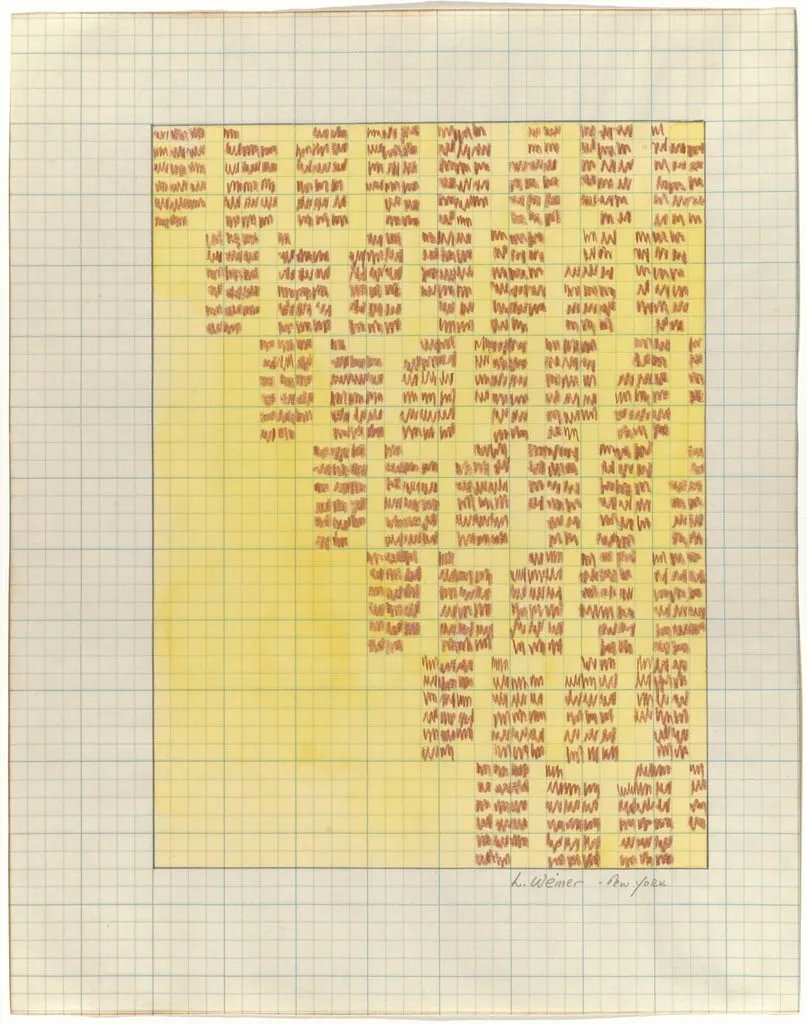 L. Weiner - New York